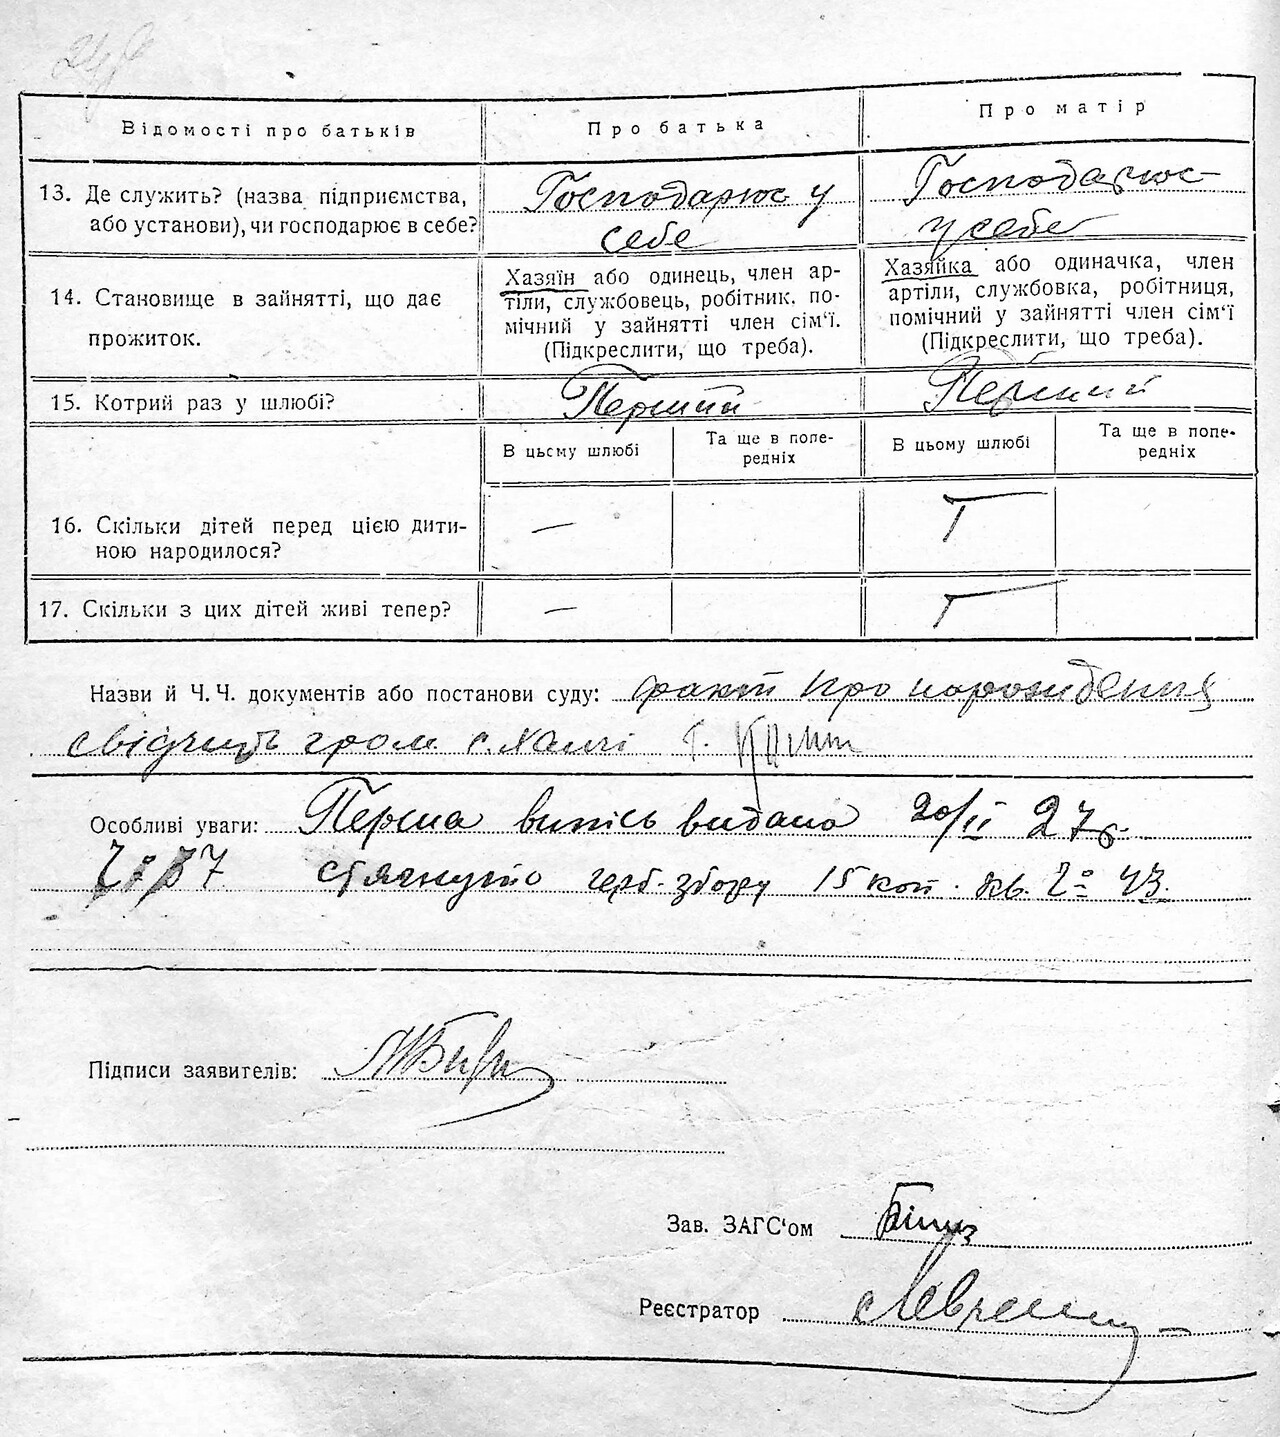 Відомості про батьків
Про батька
Про матір
13. Де служить? (назва підприємства,
або установи), чи господарює в себе?
Господарює у
себе
Господарює
у себе
14. Становище в зайнятті, що дає
прожиток.
Хазяїн або одинець, член ар-
тіли, службовець, робітник. по-
мічний у зайнятті член сім'ї.
(Підкреслити, що треба).
Хазяйка або одиначка, член
артіли, службовка, робітниця,
помічний у зайнятті член сім'ї
(Підкреслити, що треба).
15. Котрий раз у шлюбі?
Перший
Перший
В цьому шлюбі
Та ще в попе-
редніх
В цьому шлюбі
Та ще в попе-
редніх
16. Скільки дітей перед цією дити-
ною народилося?
—
17. Скільки з цих дітей живі тепер?
—
Назви й Ч. Ч. документів або постанови суду: факт про народження
свідчить гром. с.
Особливі уваги: Перша випись видана 20/II 27р.
стягнуто герб. збору 15 коп. кв. № 43.
Підписи заявителів:
Зав. ЗАГС'ом
Реєстратор